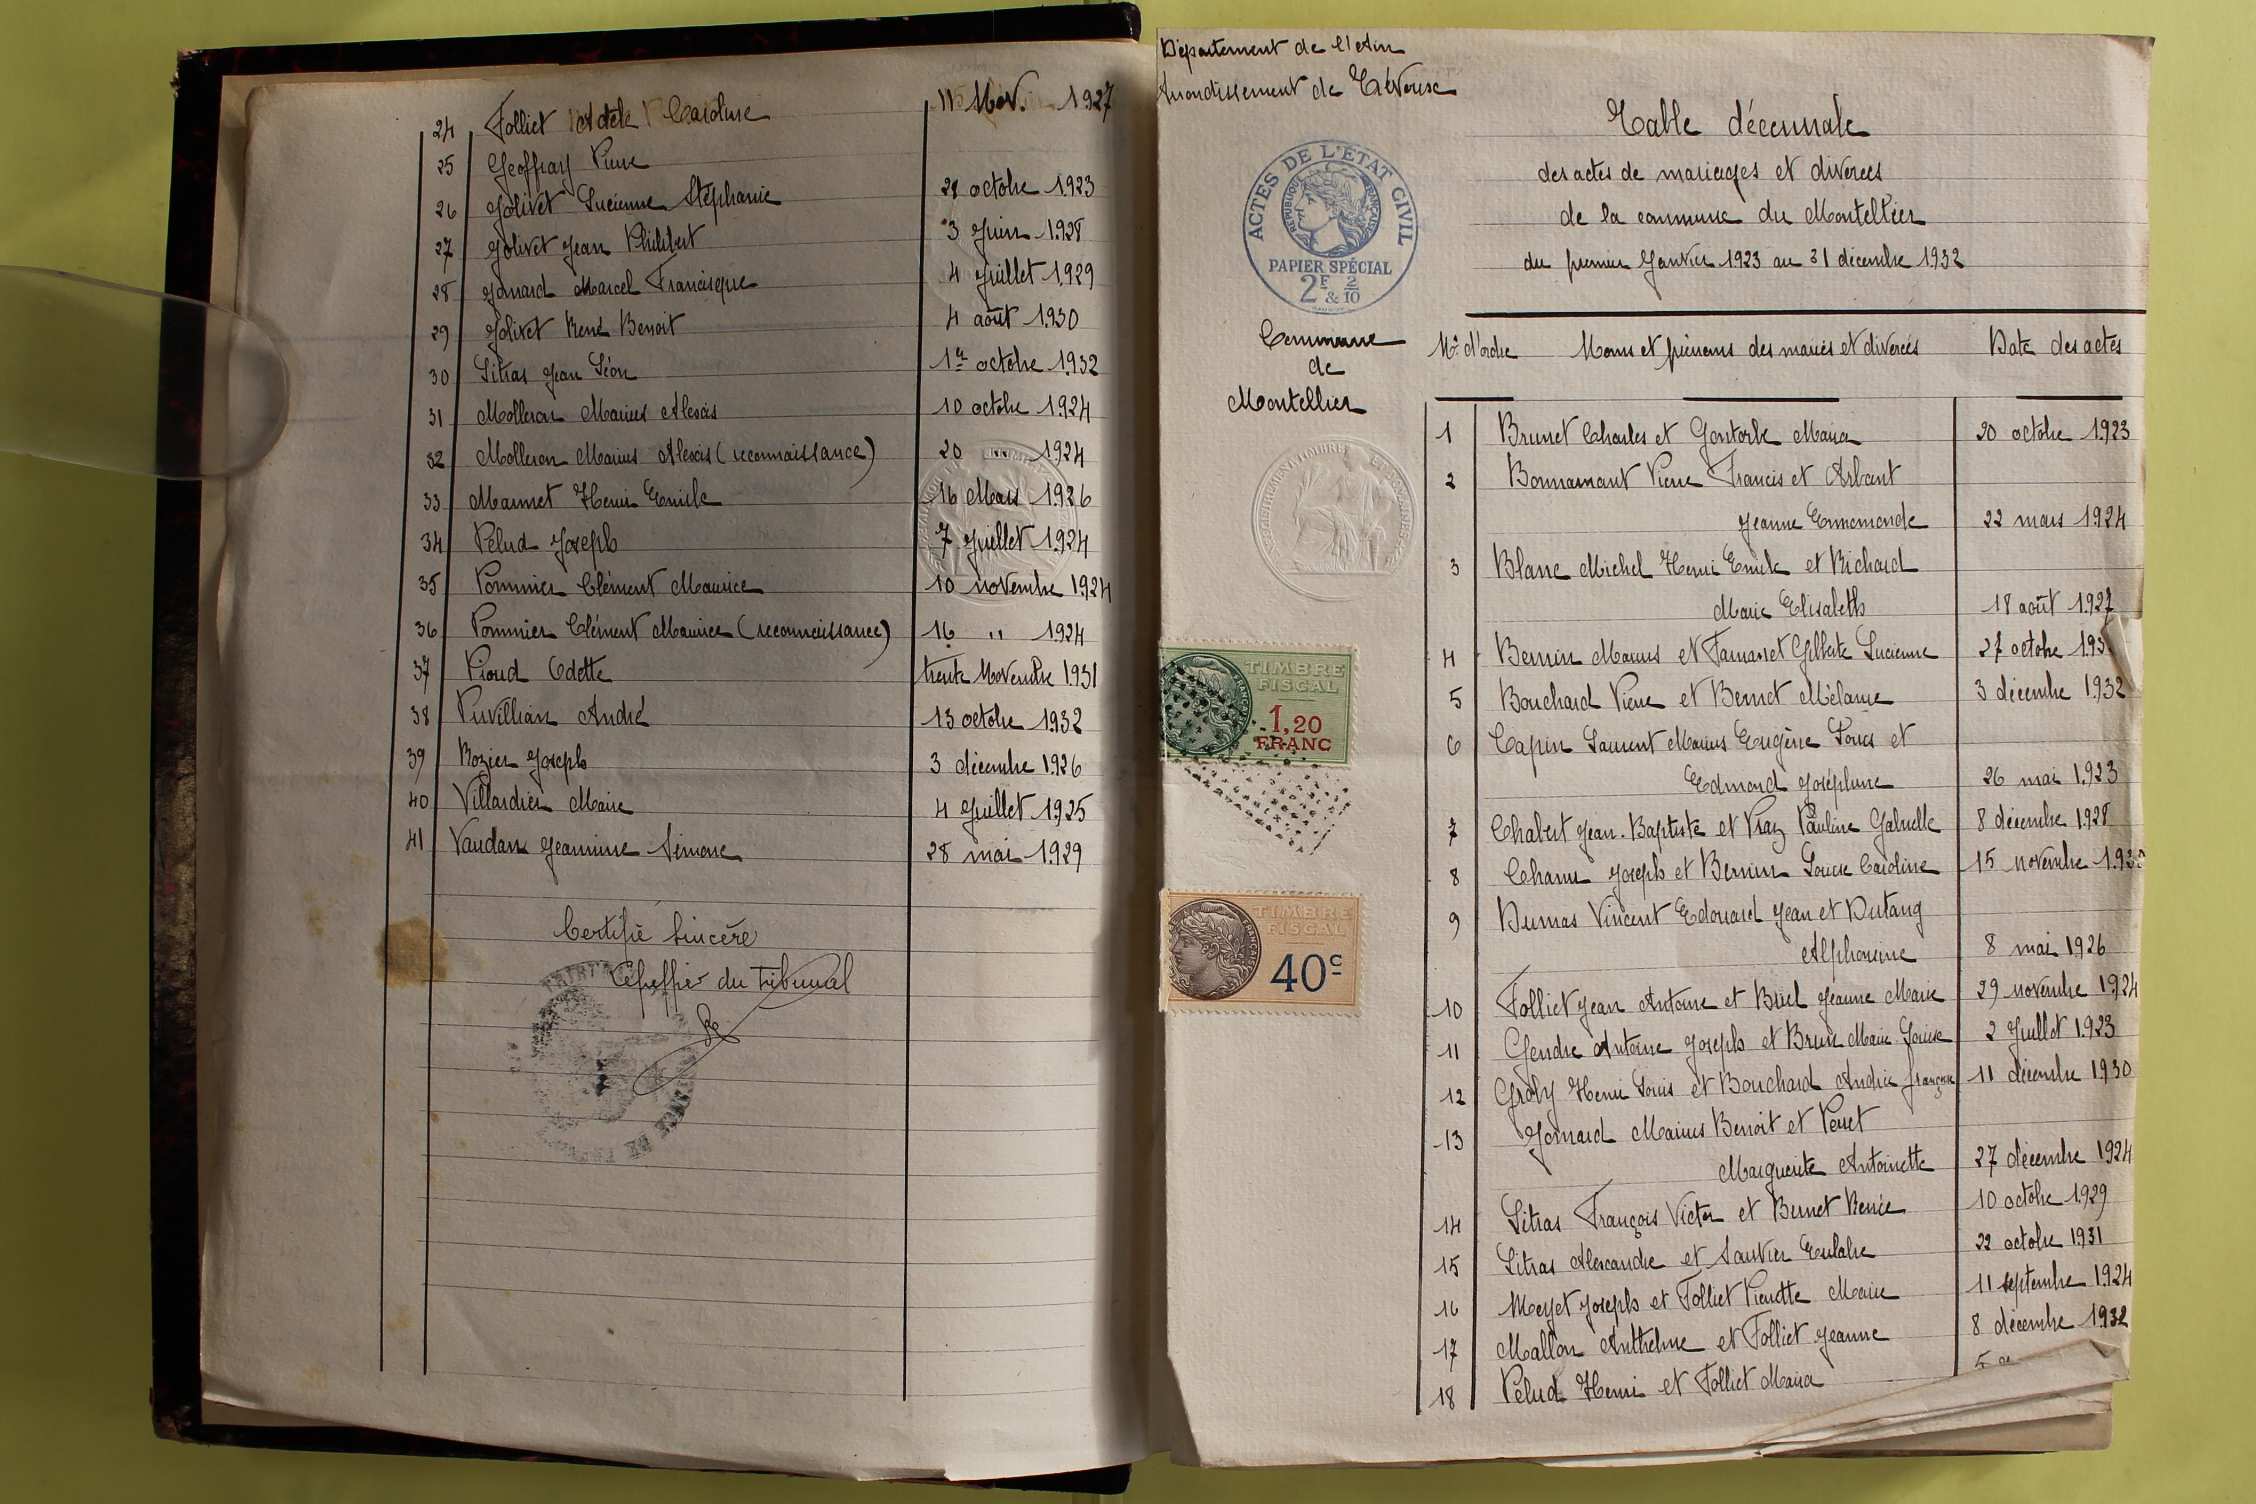 24 Folliet Adèle Caroline 11 Nov. 1927
25 Geoffray Pierre
26 Jolivet Lucienne Stéphanie 21 octobre 1923
27 Jolivet Jean Philibert 3 Juin 1928
28 Jomard Marcel Francisque 4 Juillet 1929
29 Jolivet René Benoit 4 août 1930
30 Litras Jean Léon 1er octobre 1932
31 Molleron Marius Alexis 10 octobre 1924
32 Molleron Marius Alexis (reconnaissance) 20 1924
33 Mannet Henri Emile 16 Mars 1926
34 Pelud Joseph 7 Juillet 1924
35 Pommier Clément Maurice 10 novembre 1924
36 Pommier Clément Maurice (reconnaissance) 16 " 1924
37 Pioud Odette trente Novembre 1931
38 Puvillian André 13 octobre 1932
39 Rozier Joseph 3 décembre 1926
40 Villardier Marie 4 Juillet 1925
41 Vaudan Jeannine Simone 28 mai 1929
Certifié sincère
Le greffier du tribunal
Département de l'Ain
Arrondissement de Trévoux
ACTES DE L'ÉTAT CIVIL
RÉPUBLIQUE FRANÇAISE
PAPIER SPÉCIAL
2F & 2/10
Commune
de
Montellier
TIMBRE
FISCAL
1,20
FRANC
TIMBRE
FISCAL
40c
Table décennale
des actes de mariages et divorces
de la commune du Montellier
du premier Janvier 1923 au 31 décembre 1932
No d'ordre Noms et prénoms des mariés et divorcés Date des actes
1 Brunet Charles et Gontorbe Maria 20 octobre 1923
2 Bonnamant Pierre Francis et Arbant
Jeanne Ennemonde 22 mars 1924
3 Blanc Michel Henri Emile et Richard
Marie Elisabeth 18 août 1927
4 Bernin Marius et Famanet Gilberte Lucienne 27 octobre 193
5 Bouchard Pierre et Bernet Mélanie 3 décembre 1932
6 Capin Laurent Marius Eugène Louis et
Edmond Joséphine 26 mai 1923
7 Chabert Jean-Baptiste et Praz Pauline Gabrielle 8 décembre 1928
8 Chanu Joseph et Bernin Louise Caroline 15 novembre 193
9 Dumas Vincent Edouard Jean et Dutang
Alphonsine 8 mai 1926
10 Folliet Jean Antoine et Briel Jeanne Marie 29 novembre 1924
11 Gendre Antoine Joseph et Brun Marie Louise 2 Juillet 1923
12 Groby Henri Louis et Bouchard Andrée françoise 11 décembre 1930
13 Jomard Marius Benoit et Perret
Marguerite Antoinette 27 décembre 1924
14 Litras François Victor et Brunet Renée 10 octobre 1929
15 Litras Alexandre et Sauvier Eulalie 22 octobre 1931
16 Meyet Joseph et Folliet Pierrette Marie 11 septembre 1924
17 Mallon Anthelme et Folliet Jeanne 8 décembre 1932
18 Pelud Henri et Folliet Maria 5